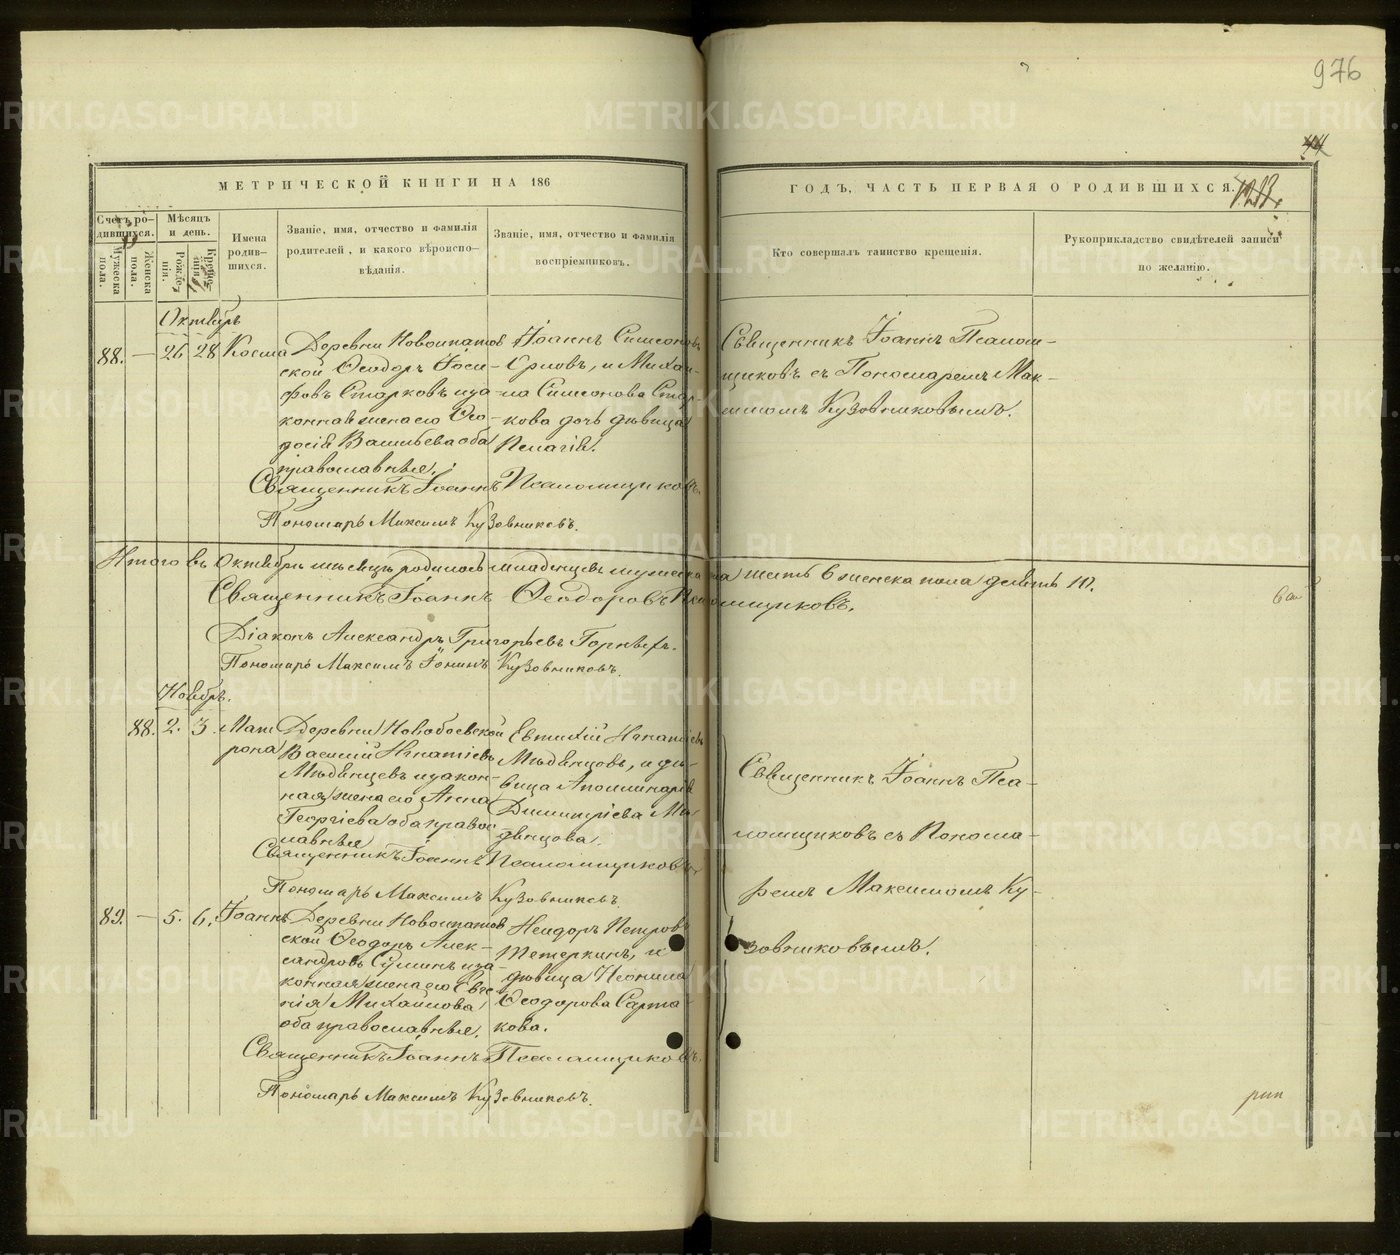 976
44
МЕТРИЧЕСКОЙ КНИГИ НА 186
ГОДЪ, ЧАСТЬ ПЕРВАЯ О РОДИВШИХСЯ.
Счетъ ро-
дившихся.
Мужеска
пола.
Женска
пола.
Мѣсяцъ
и день.
Рожде-
нія.
Креще-
нія.
Имена
родив-
шихся.
Званіе, имя, отчество и фамилія
родителей, и какого вѣроиспо-
вѣданія.
Званіе, имя, отчество и фамилія
воспріемниковъ.
Кто совершалъ таинство крещенія.
Рукоприкладство свидѣтелей записи
по желанію.
Октябрь
88. — 26 28 Косма
Деревни Новоипатов
ской Ѳеодоръ Іоси-
фовъ Старковъ и за-
конная жена его Ѳео-
досія Васильева оба
православныя.
Іоаннъ Симеоновъ
Ерловъ, и Михаи-
ла Симеонова Стар-
кова дочь дѣвица
Пелагія.
Священникъ Іоаннъ Псалом-
щиковъ съ Пономаремъ Мак-
симомъ Кузовниковымъ.
Священникъ Іоаннъ Псаломщиковъ.
Пономарь Максимъ Кузовниковъ.
Итого въ Октябрѣ мѣсяцѣ родилось младенцевъ мужеска пола шесть 6 женска пола десять 10.
Священникъ Іоаннъ Ѳеодоровъ Псаломщиковъ.
Діаконъ Александръ Григорьевъ Горныхъ.
Пономарь Максимъ Іонинъ Кузовниковъ.
Ноябрь.
88. 2. 3. Мат
рона
Деревни Новобоевской
Василій Игнатіевъ
Мѣдвнцевъ и закон-
ная жена его Анна
Георгіева оба правос-
лавныя
Евтихій Игнатіевъ
Мѣдвнцовъ, и дѣ-
вица Аполлинарія
Димитріева Мѣ-
двнцова.
Священникъ Іоаннъ Псаломщиковъ
Пономарь Максимъ Кузовниковъ.
Священникъ Іоаннъ Пса-
ломщиковъ съ Понома-
ремъ Максимомъ Ку-
зовниковымъ.
89. — 5. 6. Іоаннъ
Деревни Новоипатов
ской Ѳеодоръ Алек-
сандровъ Суминъ и за-
конная жена его Евге-
нія Михайлова,
оба православныя.
Исидоръ Петровъ
Тетеркинъ, и
дѣвица Неонила
Ѳеодорова Сарта-
кова.
Священникъ Іоаннъ Псаломщиковъ.
Пономарь Максимъ Кузовниковъ.
METRIKI.GASO-URAL.RU